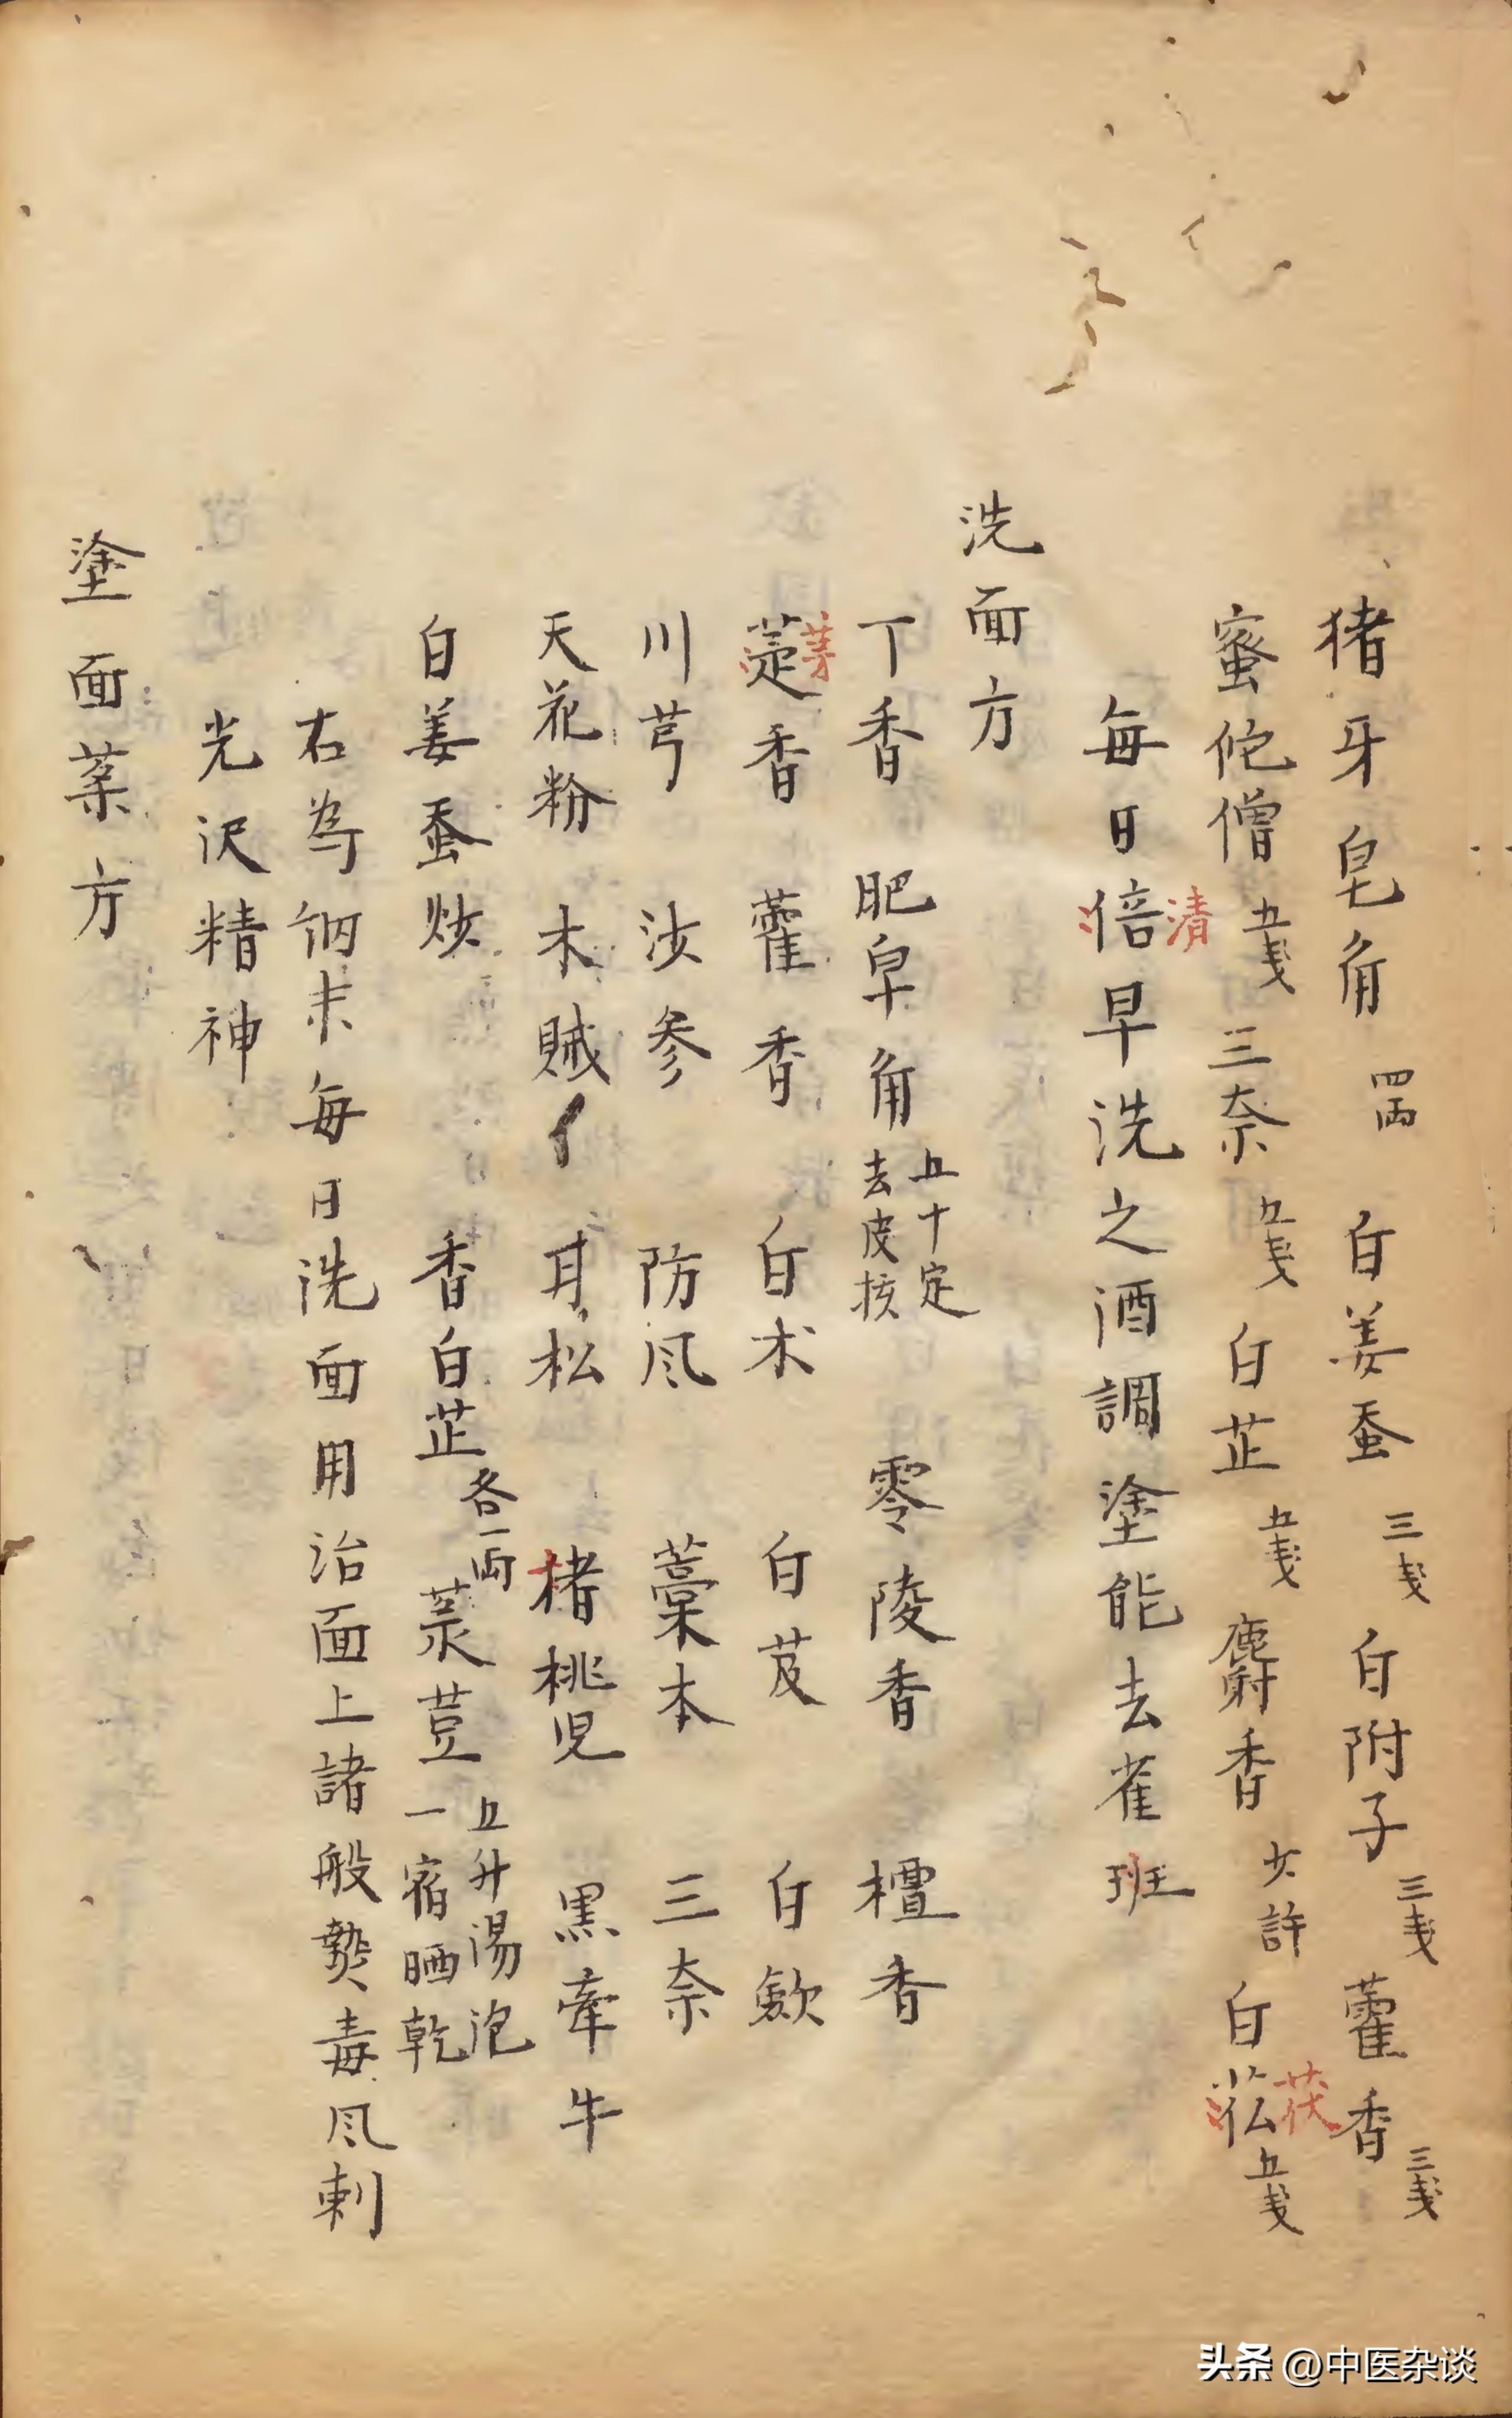 猪牙皂角 四両 白姜蚕 三戋 白附子 三戋 藿香 三戋
蜜佗僧 五戋 三奈 五戋 白芷 五戋 麝香 少許 白菘 茯 五戋
每日倍 清 早洗之酒調塗能去雀班
洗面方
丁香 肥皁角 五十定 去皮核 零陵香 檀香
茅 香 藿香 白术 白芨 白歛
川芎 沙参 防风 藁本 三奈
天花粉 木賊 甘松 楮桃児 黒牽牛
白姜蚕炒 香白芷 各一両 菉荳 五升湯泡 一宿晒乾
右為細末每日洗面用治面上諸般熱毒风刺
光沢精神
塗面薬方
头条 @中医杂谈